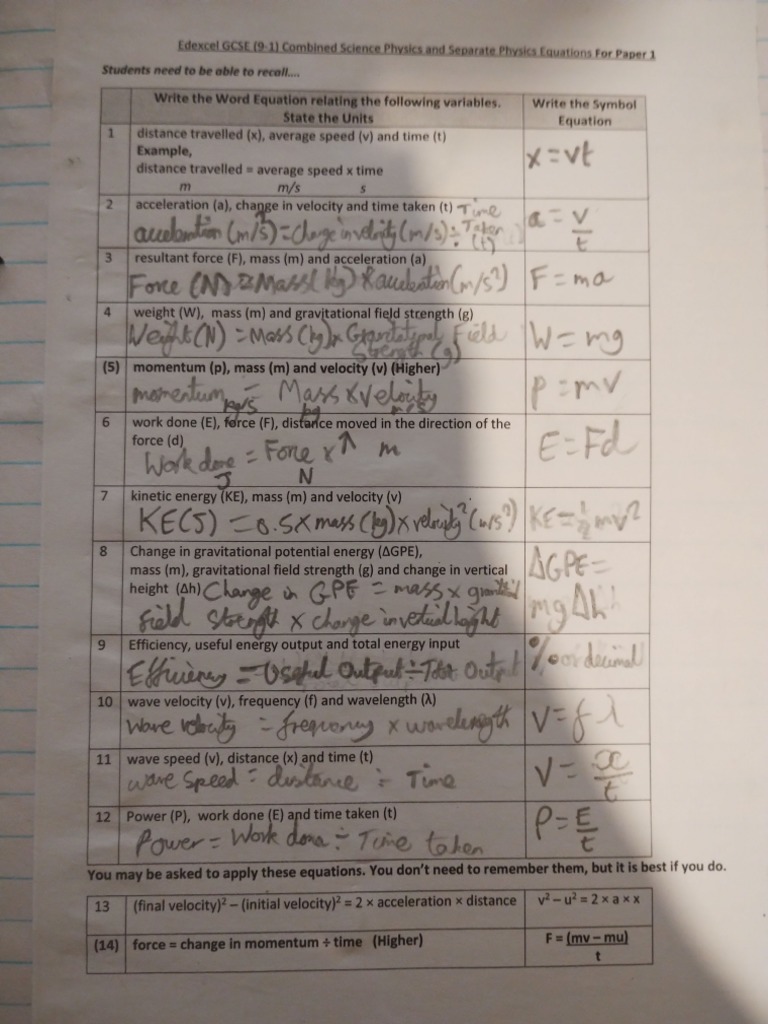 Edexcel GCSE (9-1) Combined Science Physics and Separate Physics Equations For Paper 1
Students need to be able to recall....
Write the Word Equation relating the following variables. State the Units
Write the Symbol Equation
1 distance travelled (x), average speed (v) and time (t)
Example,
distance travelled = average speed x time
m m/s s
x = vt
2 acceleration (a), change in velocity and time taken (t) Time
acceleration (m/s²) = Change in velocity (m/s) ÷ Taken
(t)
a = v/t
3 resultant force (F), mass (m) and acceleration (a)
Force (N) = Mass (kg) x acceleration (m/s²)
F = ma
4 weight (W), mass (m) and gravitational field strength (g)
Weight (N) = Mass (kg) x Gravitational Field
Strength (g)
W = mg
(5) momentum (p), mass (m) and velocity (v) (Higher)
momentum = Mass x Velocity
kg m/s
P = mv
6 work done (E), force (F), distance moved in the direction of the
force (d)
Work done = Force x ↑ m
J N
E = Fd
7 kinetic energy (KE), mass (m) and velocity (v)
KE (J) = 0.5 x mass (kg) x velocity² (m/s²)
KE = ½ mv²
8 Change in gravitational potential energy (ΔGPE),
mass (m), gravitational field strength (g) and change in vertical
height (Δh) Change in GPE = mass x
field strength x change in vertical height
ΔGPE =
mg Δh
9 Efficiency, useful energy output and total energy input
Efficiency = Useful Output ÷ Output
% or decimal
10 wave velocity (v), frequency (f) and wavelength (λ)
Wave velocity = frequency x wavelength
V = f λ
11 wave speed (v), distance (x) and time (t)
wave Speed = distance ÷ Time
V = x/t
12 Power (P), work done (E) and time taken (t)
Power = Work done ÷ Time taken
P = E/t
You may be asked to apply these equations. You don't need to remember them, but it is best if you do.
13 (final velocity)² – (initial velocity)² = 2 × acceleration × distance
v² – u² = 2 × a × x
(14) force = change in momentum ÷ time (Higher)
F = (mv – mu)
t